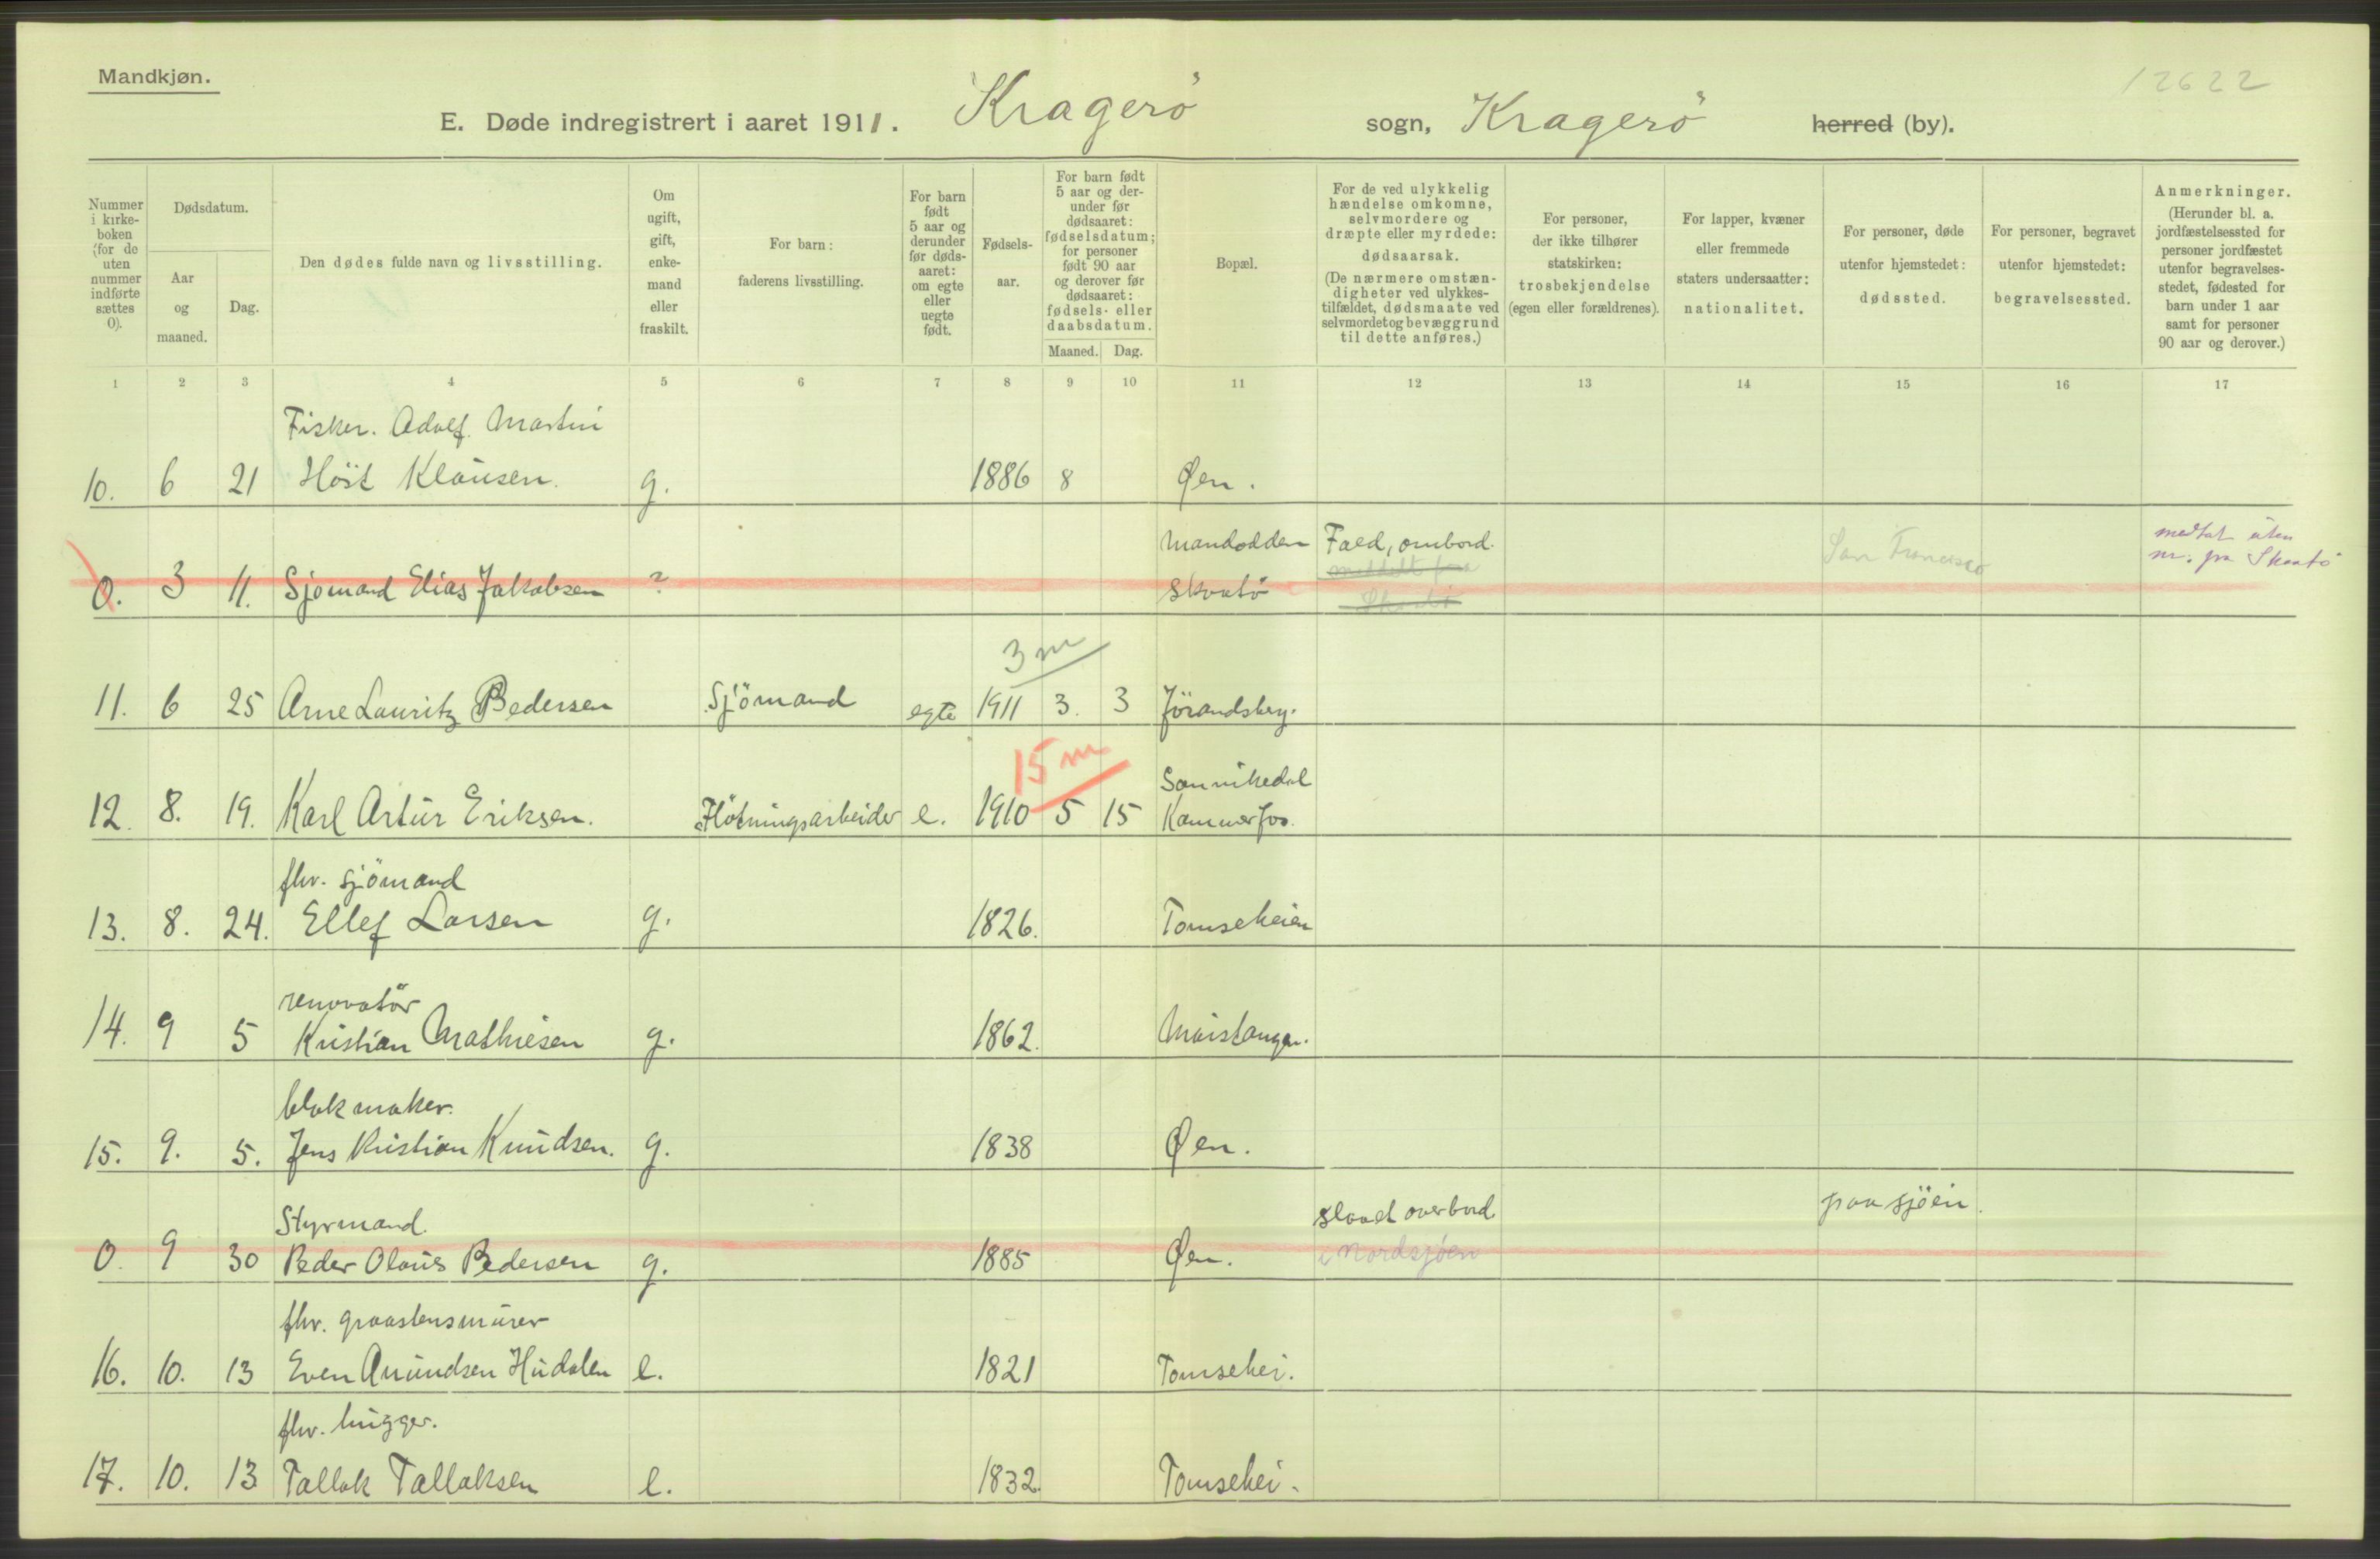 Mandkjøn.
12622
E. Døde indregistrert i aaret 1911. Kragerö sogn, Kragerö herred (by).
Nummer i kirke-boken (for de uten nummer indførte sættes 0).
Dødsdatum.
Aar og maaned.
Dag.
Den dødes fulde navn og livsstilling.
Om ugift, gift, enke-mand eller fraskilt.
For barn: faderens livsstilling.
For barn født 5 aar og derunder før døds-aaret: om egte eller uegte født.
Fødsels-aar.
For barn født 5 aar og der-under før dødsaaret: fødselsdatum; for personer født 90 aar og derover før dødsaaret: fødsels- eller daabsdatum.
Maaned. Dag.
Bopæl.
For de ved ulykkelig hændelse omkomne, selvmordere og dræpte eller myrdede: dødsaarsak. (De nærmere omstæn-digheter ved ulykkes-tilfældet, dødsmaate ved selvmordet og bevæggrund til dette anføres.)
For personer, der ikke tilhører statskirken: trosbekjendelse (egen eller forældrenes).
For lapper, kvæner eller fremmede staters undersaatter: nationalitet.
For personer, døde utenfor hjemstedet: dødssted.
For personer, begravet utenfor hjemstedet: begravelsessted.
Anmerkninger. (Herunder bl. a. jordfæstelsessted for personer jordfæstet utenfor begravelses-stedet, fødested for barn under 1 aar samt for personer 90 aar og derover.)
1 2 3 4 5 6 7 8 9 10 11 12 13 14 15 16 17
Fisker. Adolf Martin
10. 6 21 Höst Klausen. g. 1886 8 Øen.
Mandodden Fald, ombord. San Francisco medtat uten
meddelt fra nr. fra Skaatö
0. 3 11. Sjømand Elias Jakobsen ? Skaatö Skaatö
3 m
11. 6 25 Arne Lauritz Pedersen Sjömand egte 1911 3. 3 Jörandsberg.
15 m
Sannikedal
12. 8. 19. Karl Artur Eriksen. Flötningsarbeider e. 1910 5 15 Kammerfos.
fhv. sjömand
13. 8. 24. Ellef Larsen g. 1826. Tomseheien
renovatör
14. 9 5 Kristian Mathiesen g. 1862.
blokmaker.
15. 9. 5. Jens Kristian Knudsen. g. 1838 Øen.
Styrmand. slaaet overbord paa sjöen.
0. 9 30 Peder Olaus Pedersen g. 1885 Øen. i Nordsjøen
fhv. graastensmurer
16. 10. 13 Even Amundsen Hudalen e. 1821 Tomsehei.
fhv. hugger.
17. 10. 13 Tallak Tallaksen e. 1832. Tomsehei.